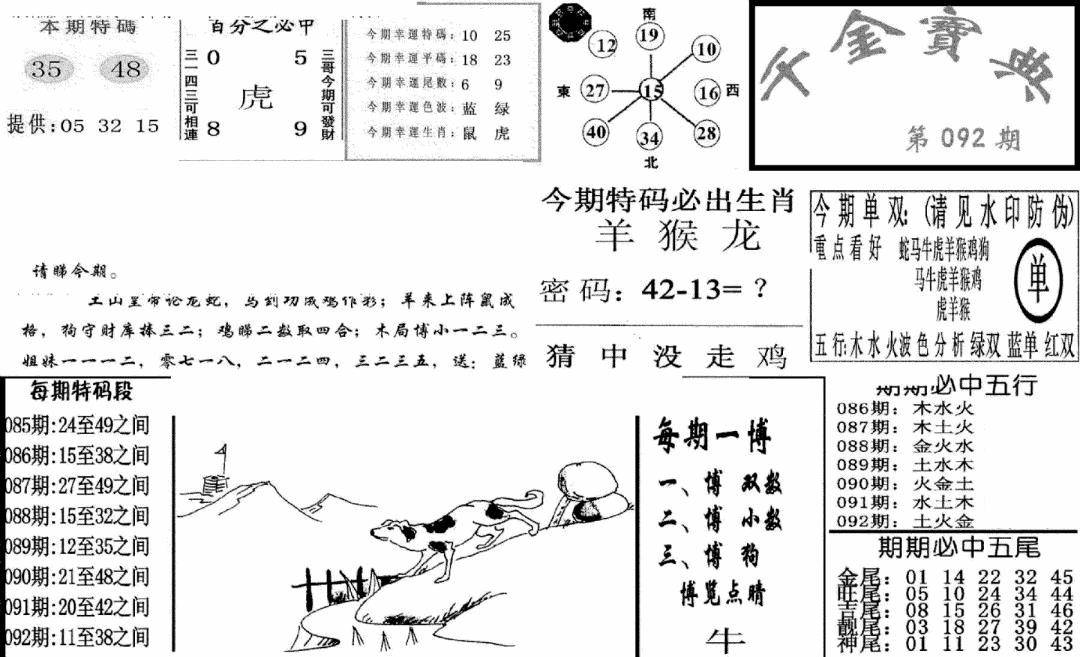 本期特碼
35 48
提供:05 32 15
百分之必中
三一四三可相連
0 5
虎
8 9
三哥今期可發財
今期幸運特碼: 10 25
今期幸運平碼: 18 23
今期幸運尾數: 6 9
今期幸運色波: 蓝 绿
今期幸運生肖: 鼠 虎
南
12 19 10
東 27 15 16 西
40 34 28
北
金寶典
第 092 期
请睇今期。
羊来上阵鼠成
格，狗守财库捧三二；鸡睇二数取四合；木局博小一二三。
姐妹一一一二，零七一八，二一二四，三二三五，送：蓝绿
今期特码必出生肖
羊 猴 龙
密码：42-13=？
猜 中 没 走 鸡
今期单双:(请见水印防伪)
重点看好 蛇马牛虎羊猴鸡狗
马牛虎羊猴鸡
虎羊猴
单
五行:木水火波色分析绿双 蓝单 红双
每期特码段
085期:24至49之间
086期:15至38之间
087期:27至49之间
088期:15至32之间
089期:12至35之间
090期:21至48之间
091期:20至42之间
092期:11至38之间
每期一博
一、博 双数
二、博 小数
三、博 狗
博览点睛
牛
期期必中五行
086期：木水火
087期：木土火
088期：金火水
089期：土水木
090期：火金土
091期：水土木
092期：土火金
期期必中五尾
金尾：01 14 22 32 45
旺尾：05 10 24 34 44
吉尾：08 15 26 31 46
靓尾：03 18 27 39 42
神尾：01 11 23 30 43